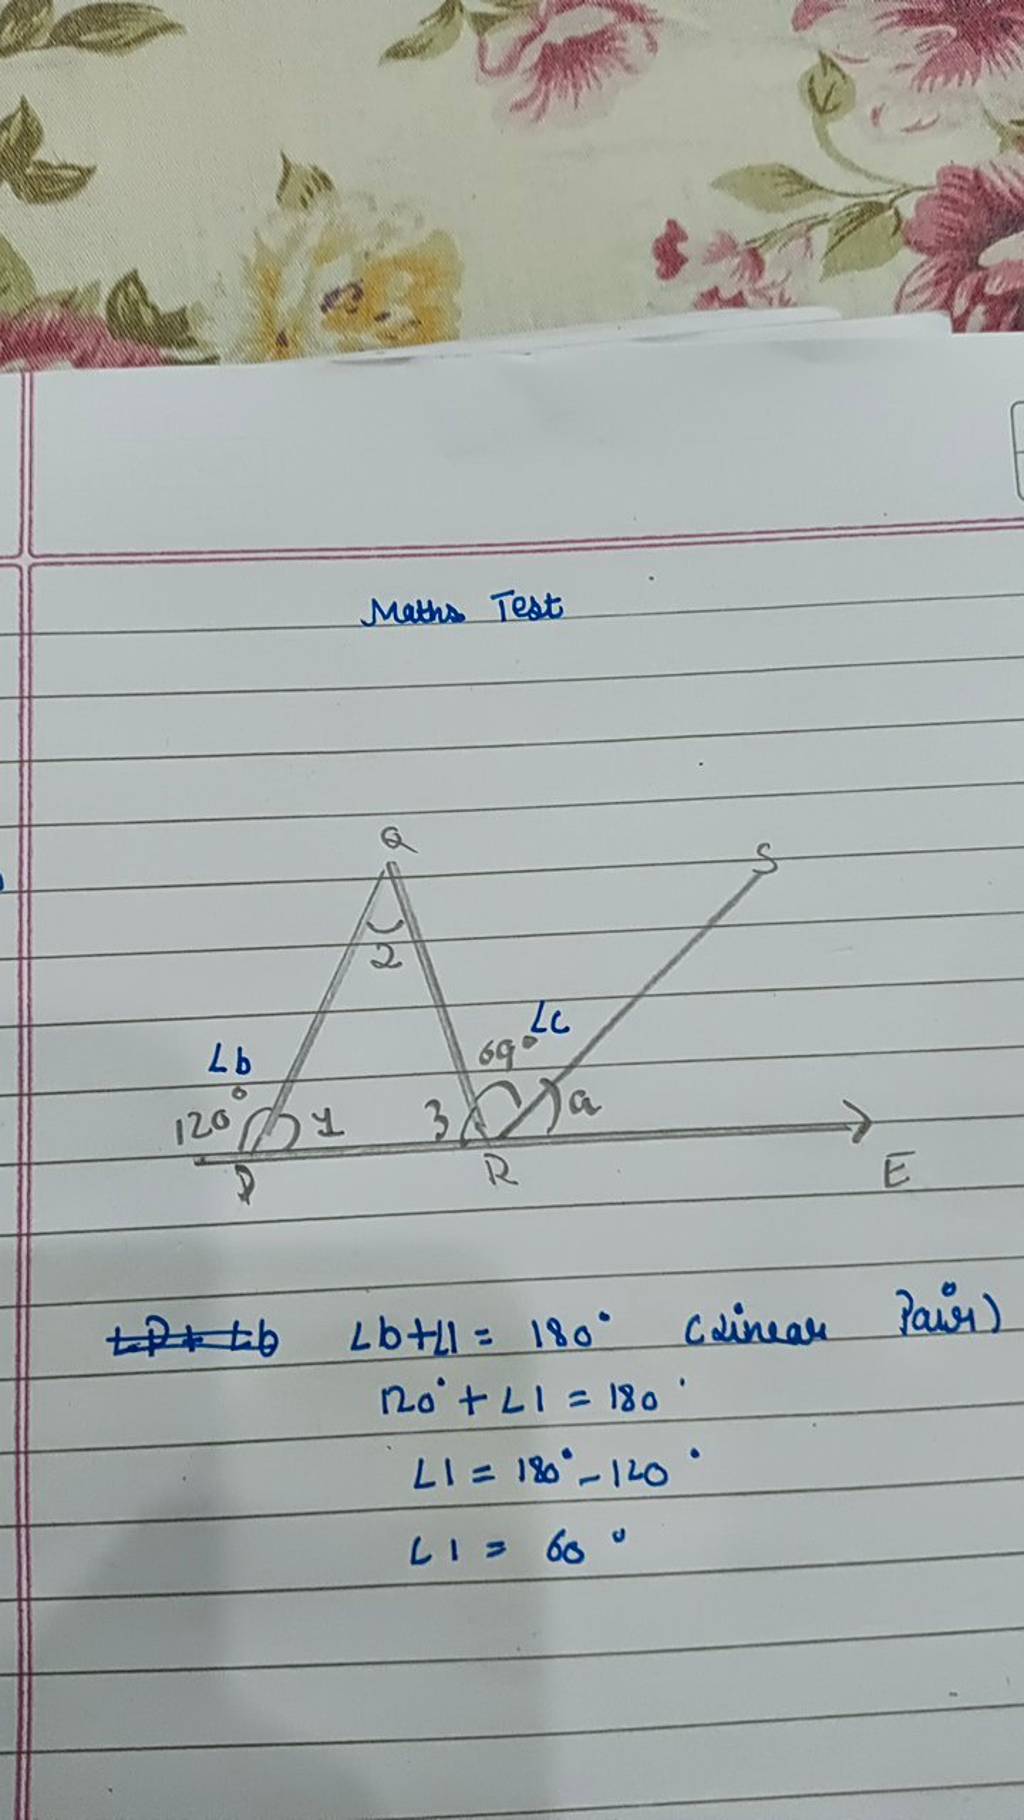 Maths Test
Q
S
2
∠b
∠c
69°
120°
1
3
a
P
R
E
∠b+∠1 = 180° (Linear Pair)
120° + ∠1 = 180°
∠1 = 180° - 120°
∠1 = 60°